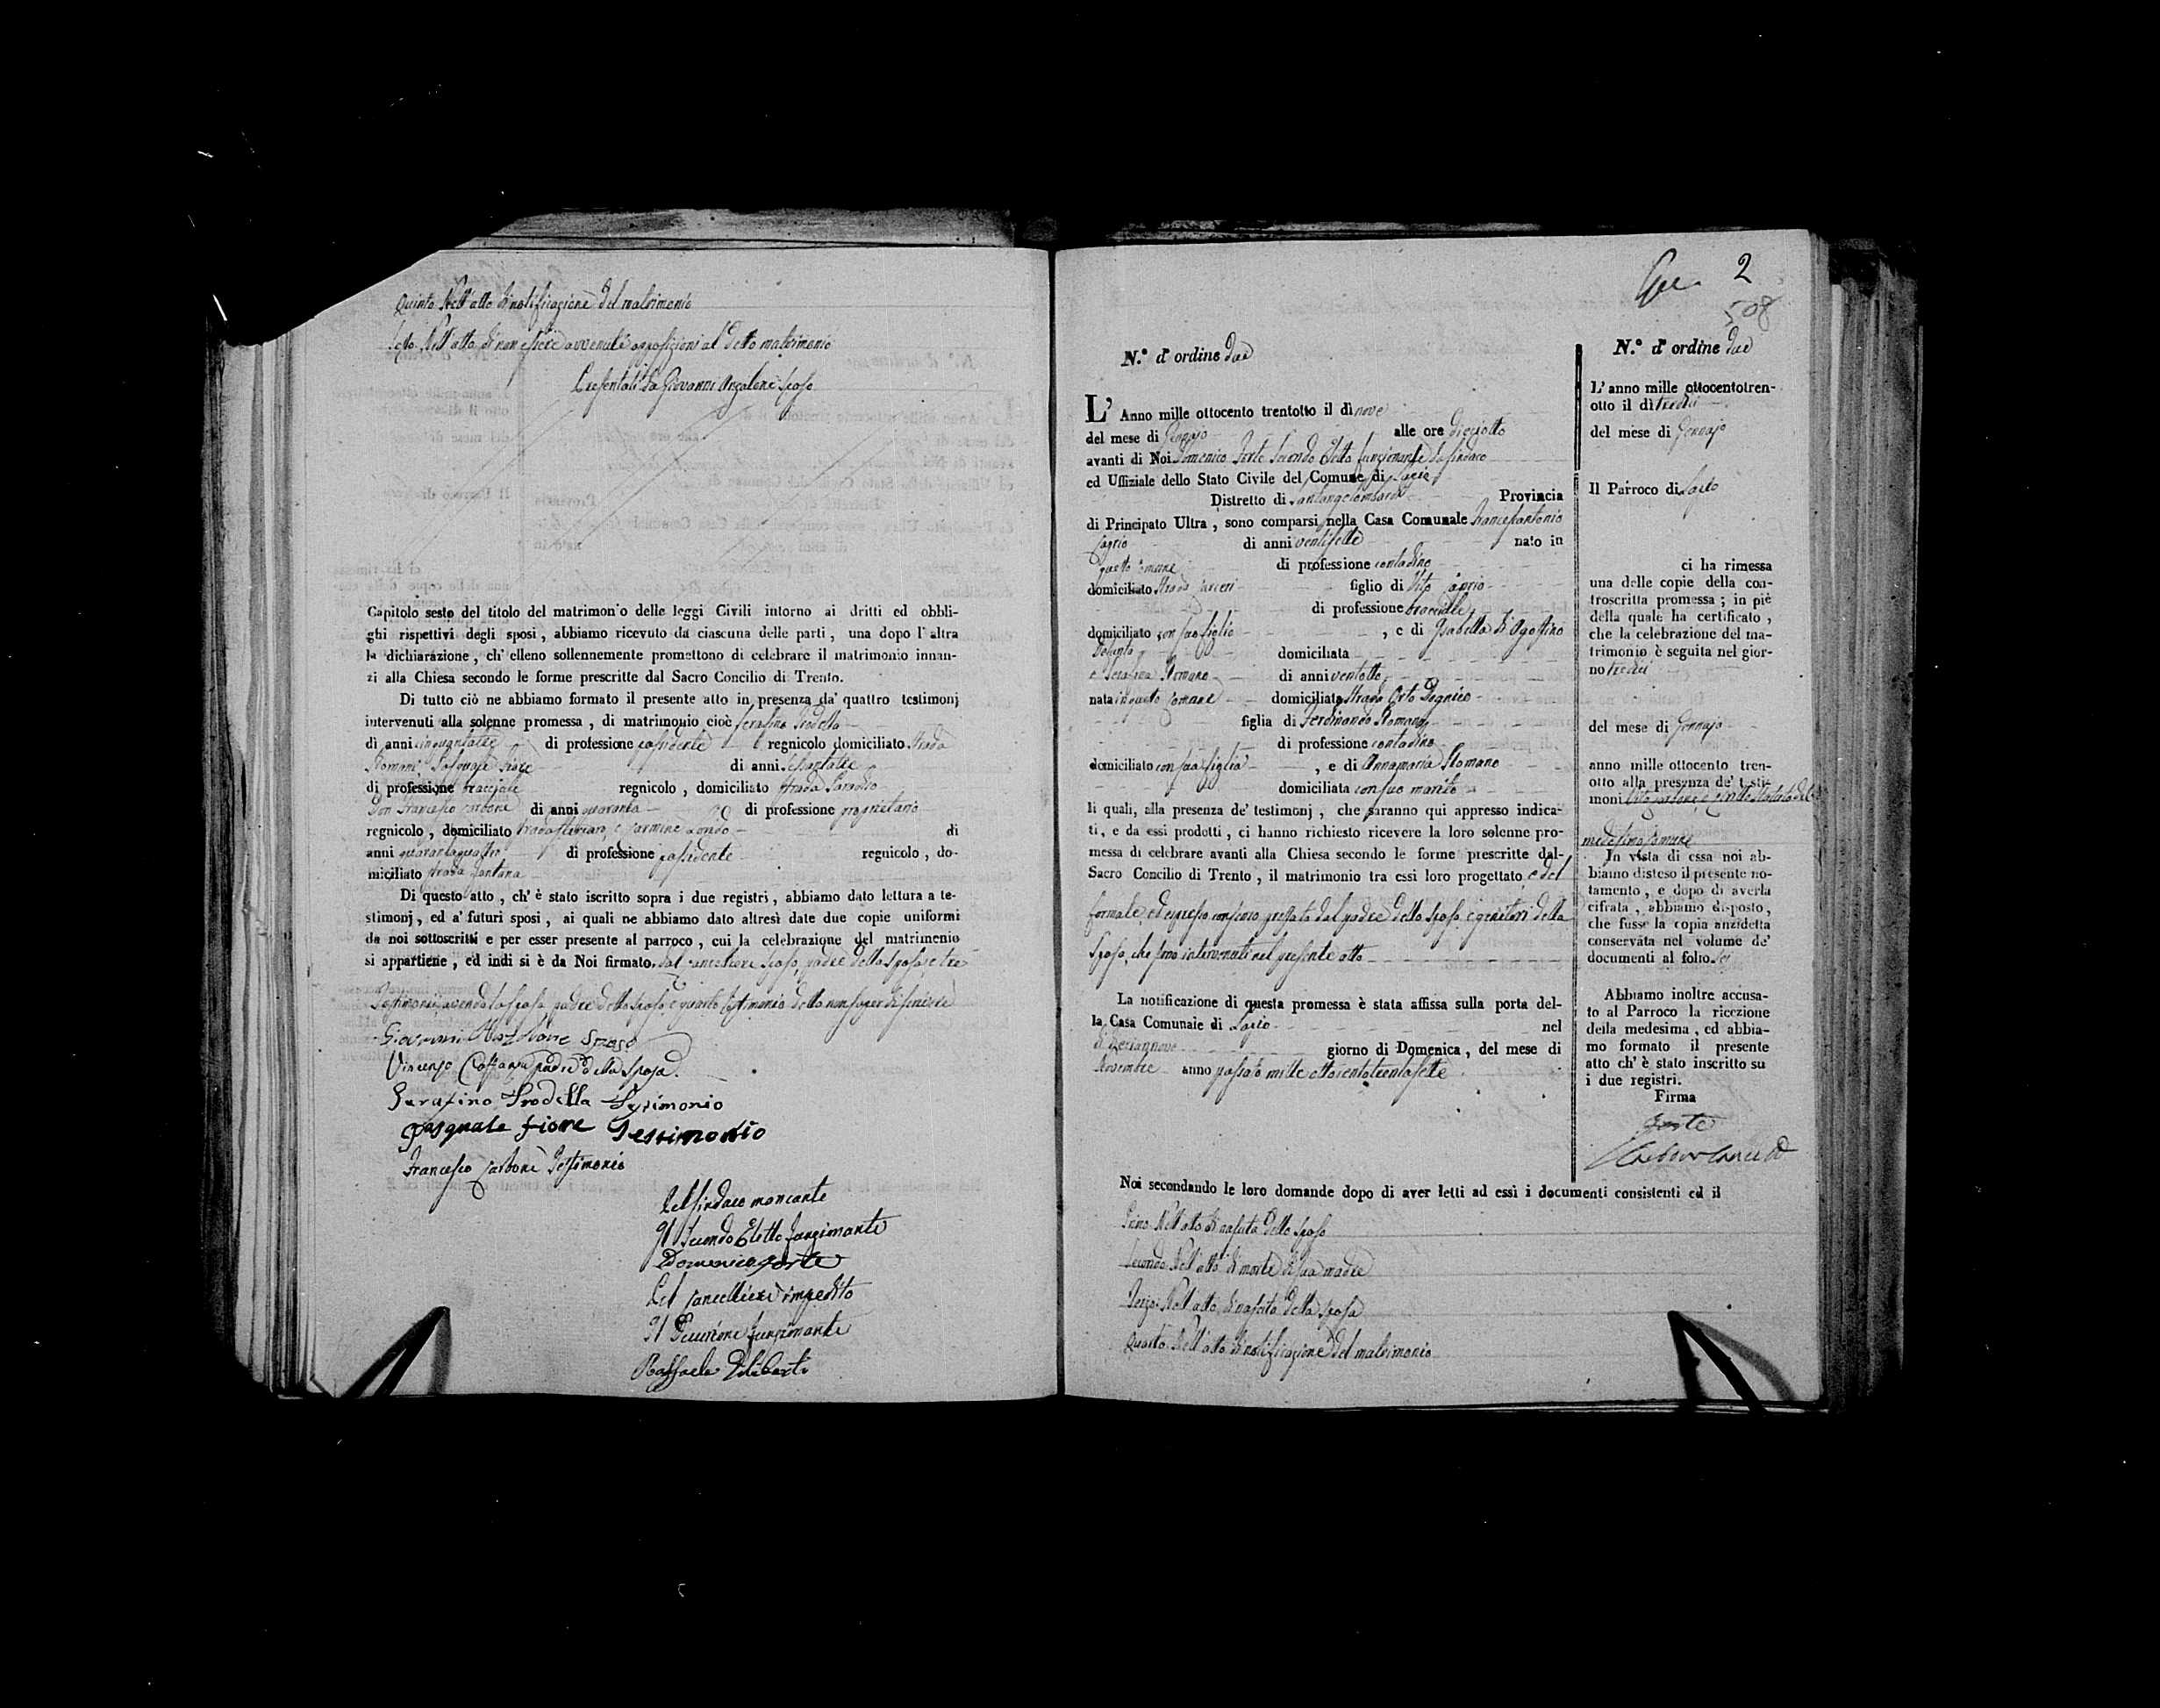 Quinto Dell'atto di notificazione del matrimonio
Sesto Dell'atto di non essere avvenute opposizioni al detto matrimonio
Presentati da Giovanni Anzalone sposo
Capitolo sesto del titolo del matrimonio delle leggi Civili intorno ai dritti ed obbli-
ghi rispettivi degli sposi, abbiamo ricevuto da ciascuna delle parti, una dopo l'altra
la dichiarazione, ch'elleno sollennemente promettono di celebrare il matrimonio innan-
zi alla Chiesa secondo le forme prescritte dal Sacro Concilio di Trento.
Di tutto ciò ne abbiamo formato il presente atto in presenza da' quattro testimonj
intervenuti alla solenne promessa, di matrimonio cioè Serafino Prodella
di anni cinquantatre di professione possidente regnicolo domiciliato strada
Romani, Pasquale Fiore di anni
di professione bracciale regnicolo, domiciliato strada Paradiso
Don Francesco Carbone di anni quaranta di professione proprietario
regnicolo, domiciliato strada e Carmine Londo di
anni quarantaquattro di professione possidente regnicolo, do-
miciliato strada Fontana
Di questo atto, ch'è stato iscritto sopra i due registri, abbiamo dato lettura a te-
stimonj, ed a' futuri sposi, ai quali ne abbiamo dato altresì date due copie uniformi
da noi sottoscritti e per esser presente al parroco, cui la celebrazione del matrimonio
si appartiene, ed indi si è da Noi firmato, dal cancelliere, sposo, padre della sposa, e tre
testimonj, avendo la sposa, padre dello sposo, e quarto testimonio detto non saper di scrivere
Giovanni Anzalone sposo
Vincenzo padre della sposa.
Serafino Prodella Testimonio
Pasquale fiore Testimonio
Francesco Carbone Testimonio
Pel sindaco mancante
Il Secondo Eletto funzionante
Domenico Forte
Pel cancelliere impedito
Il Decurione funzionante
Raffaele Diliberti
2
508
N.º d'ordine due
L'Anno mille ottocento trentotto il dì nove
del mese di Gennajo alle ore dieciotto
avanti di Noi Domenico Forte Secondo Eletto funzionante da sindaco
ed Uffiziale dello Stato Civile del Comune di Lacio
Distretto di Santangelolombardi Provincia
di Principato Ultra, sono comparsi nella Casa Comunale Francescantonio
di anni ventisette nato in
questo Comune di professione contadino
domiciliato strada figlio di Vito
di professione bracciale
domiciliato con suo figlio, e di Isabella di Agostino
Defunta domiciliata
e Serafina Romano di anni ventotto
nata in questo Comune domiciliata strada Orto
figlia di Ferdinando Romano
di professione contadino
domiciliato con sua figlia, e di Annamaria Romano
domiciliata con suo marito
li quali, alla presenza de' testimonj, che saranno qui appresso indica-
ti, e da essi prodotti, ci hanno richiesto ricevere la loro solenne pro-
messa di celebrare avanti alla Chiesa secondo le forme prescritte dal
Sacro Concilio di Trento, il matrimonio tra essi loro progettato, e del
formale, ed espresso consenso prestato dal padre dello sposo, e genitori della
sposa, che sono intervenuti nel presente atto
La notificazione di questa promessa è stata affissa sulla porta del-
la Casa Comunale di Lacio nel
dì deciannove giorno di Domenica, del mese di
Novembre anno passato mille ottocentotrentasette
Noi secondando le loro domande dopo di aver letti ad essi i documenti consistenti ed il
Primo Dell'atto di nascita dello sposo
Secondo Dell'atto di morte di sua madre
Terzo Dell'atto di nascita della sposa
Quarto Dell'atto di notificazione del matrimonio
N.º d'ordine due
L'anno mille ottocentotren-
otto il dì tredici
del mese di Gennajo
Il Parroco di Lacio
ci ha rimessa
una delle copie della con-
troscritta promessa; in piè
della quale ha certificato,
che la celebrazione del ma-
trimonio è seguita nel gior-
no tredici
del mese di Gennajo
anno mille ottocento tren-
otto alla presenza de' testi-
moni Vito Carbone, e
medesimo Comune.
In vista di essa noi ab-
biamo disteso il presente no-
tamento, e dopo di averla
cifrata, abbiamo disposto,
che fusse la copia anzidetta
conservata nel volume de'
documenti al folio sei
Abbiamo inoltre accusa-
to al Parroco la ricezione
della medesima, ed abbia-
mo formato il presente
atto ch'è stato inscritto su
i due registri.
Firma
Forte